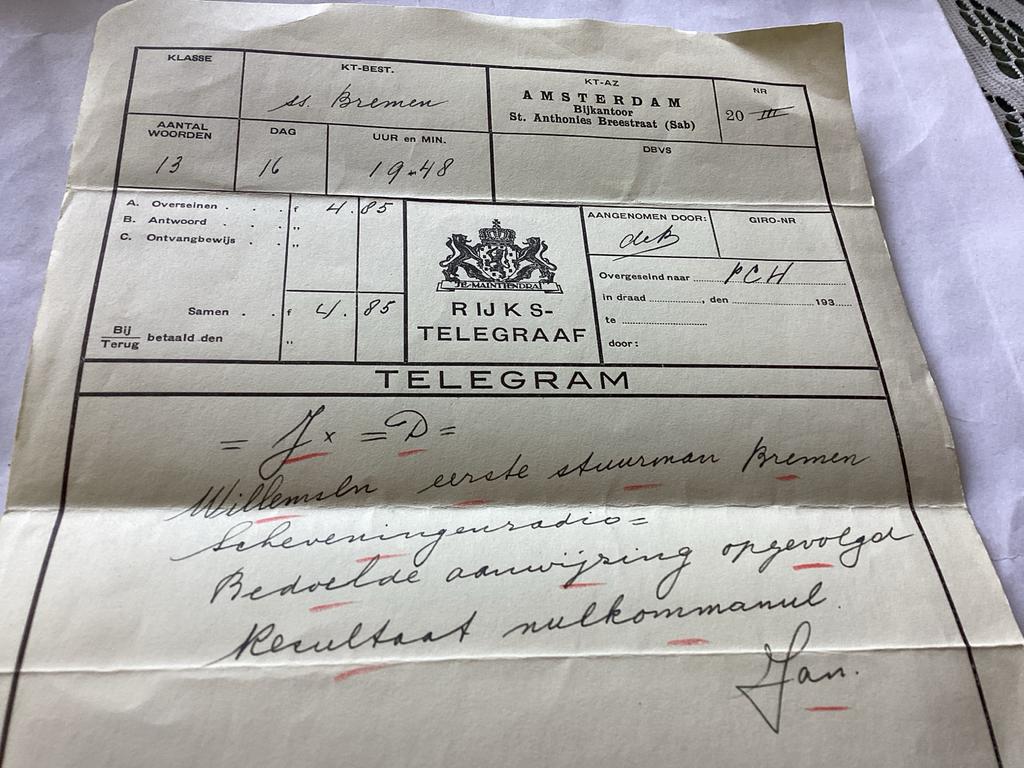 KLASSE
KT-BEST.
ss. Bremen
KT-AZ
AMSTERDAM
Bijkantoor
St. Anthonies Breestraat (Sab)
NR
20 III
AANTAL WOORDEN
13
DAG
16
UUR en MIN.
19-48
DBVS
A. Overseinen . . . f 4.85
B. Antwoord . . . "
C. Ontvangbewijs . . "
Samen . . f 4.85
Bij
Terug betaald den "
JE MAINTIENDRAI
RIJKS-
TELEGRAAF
AANGENOMEN DOOR:
GIRO-NR
Overgeseind naar PCH
in draad ............, den ............ 193....
te ............
door:
TELEGRAM
= Jx = D =
Willemsen eerste stuurman Bremen
Scheveningenradio=
Bedoelde aanwijzing opgevolgd
Resultaat nulkommanul.
Jan.